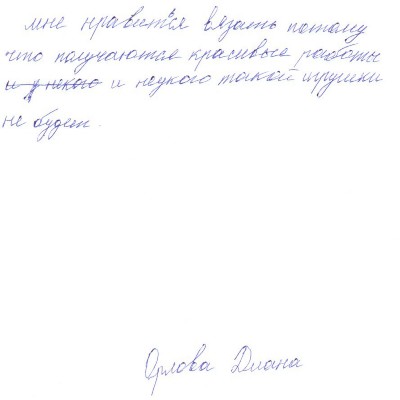 мне нравиться вязать потому
что получаются красивые работы
и у некого и неукого такой игрушки
не будет.
Орлова Диана